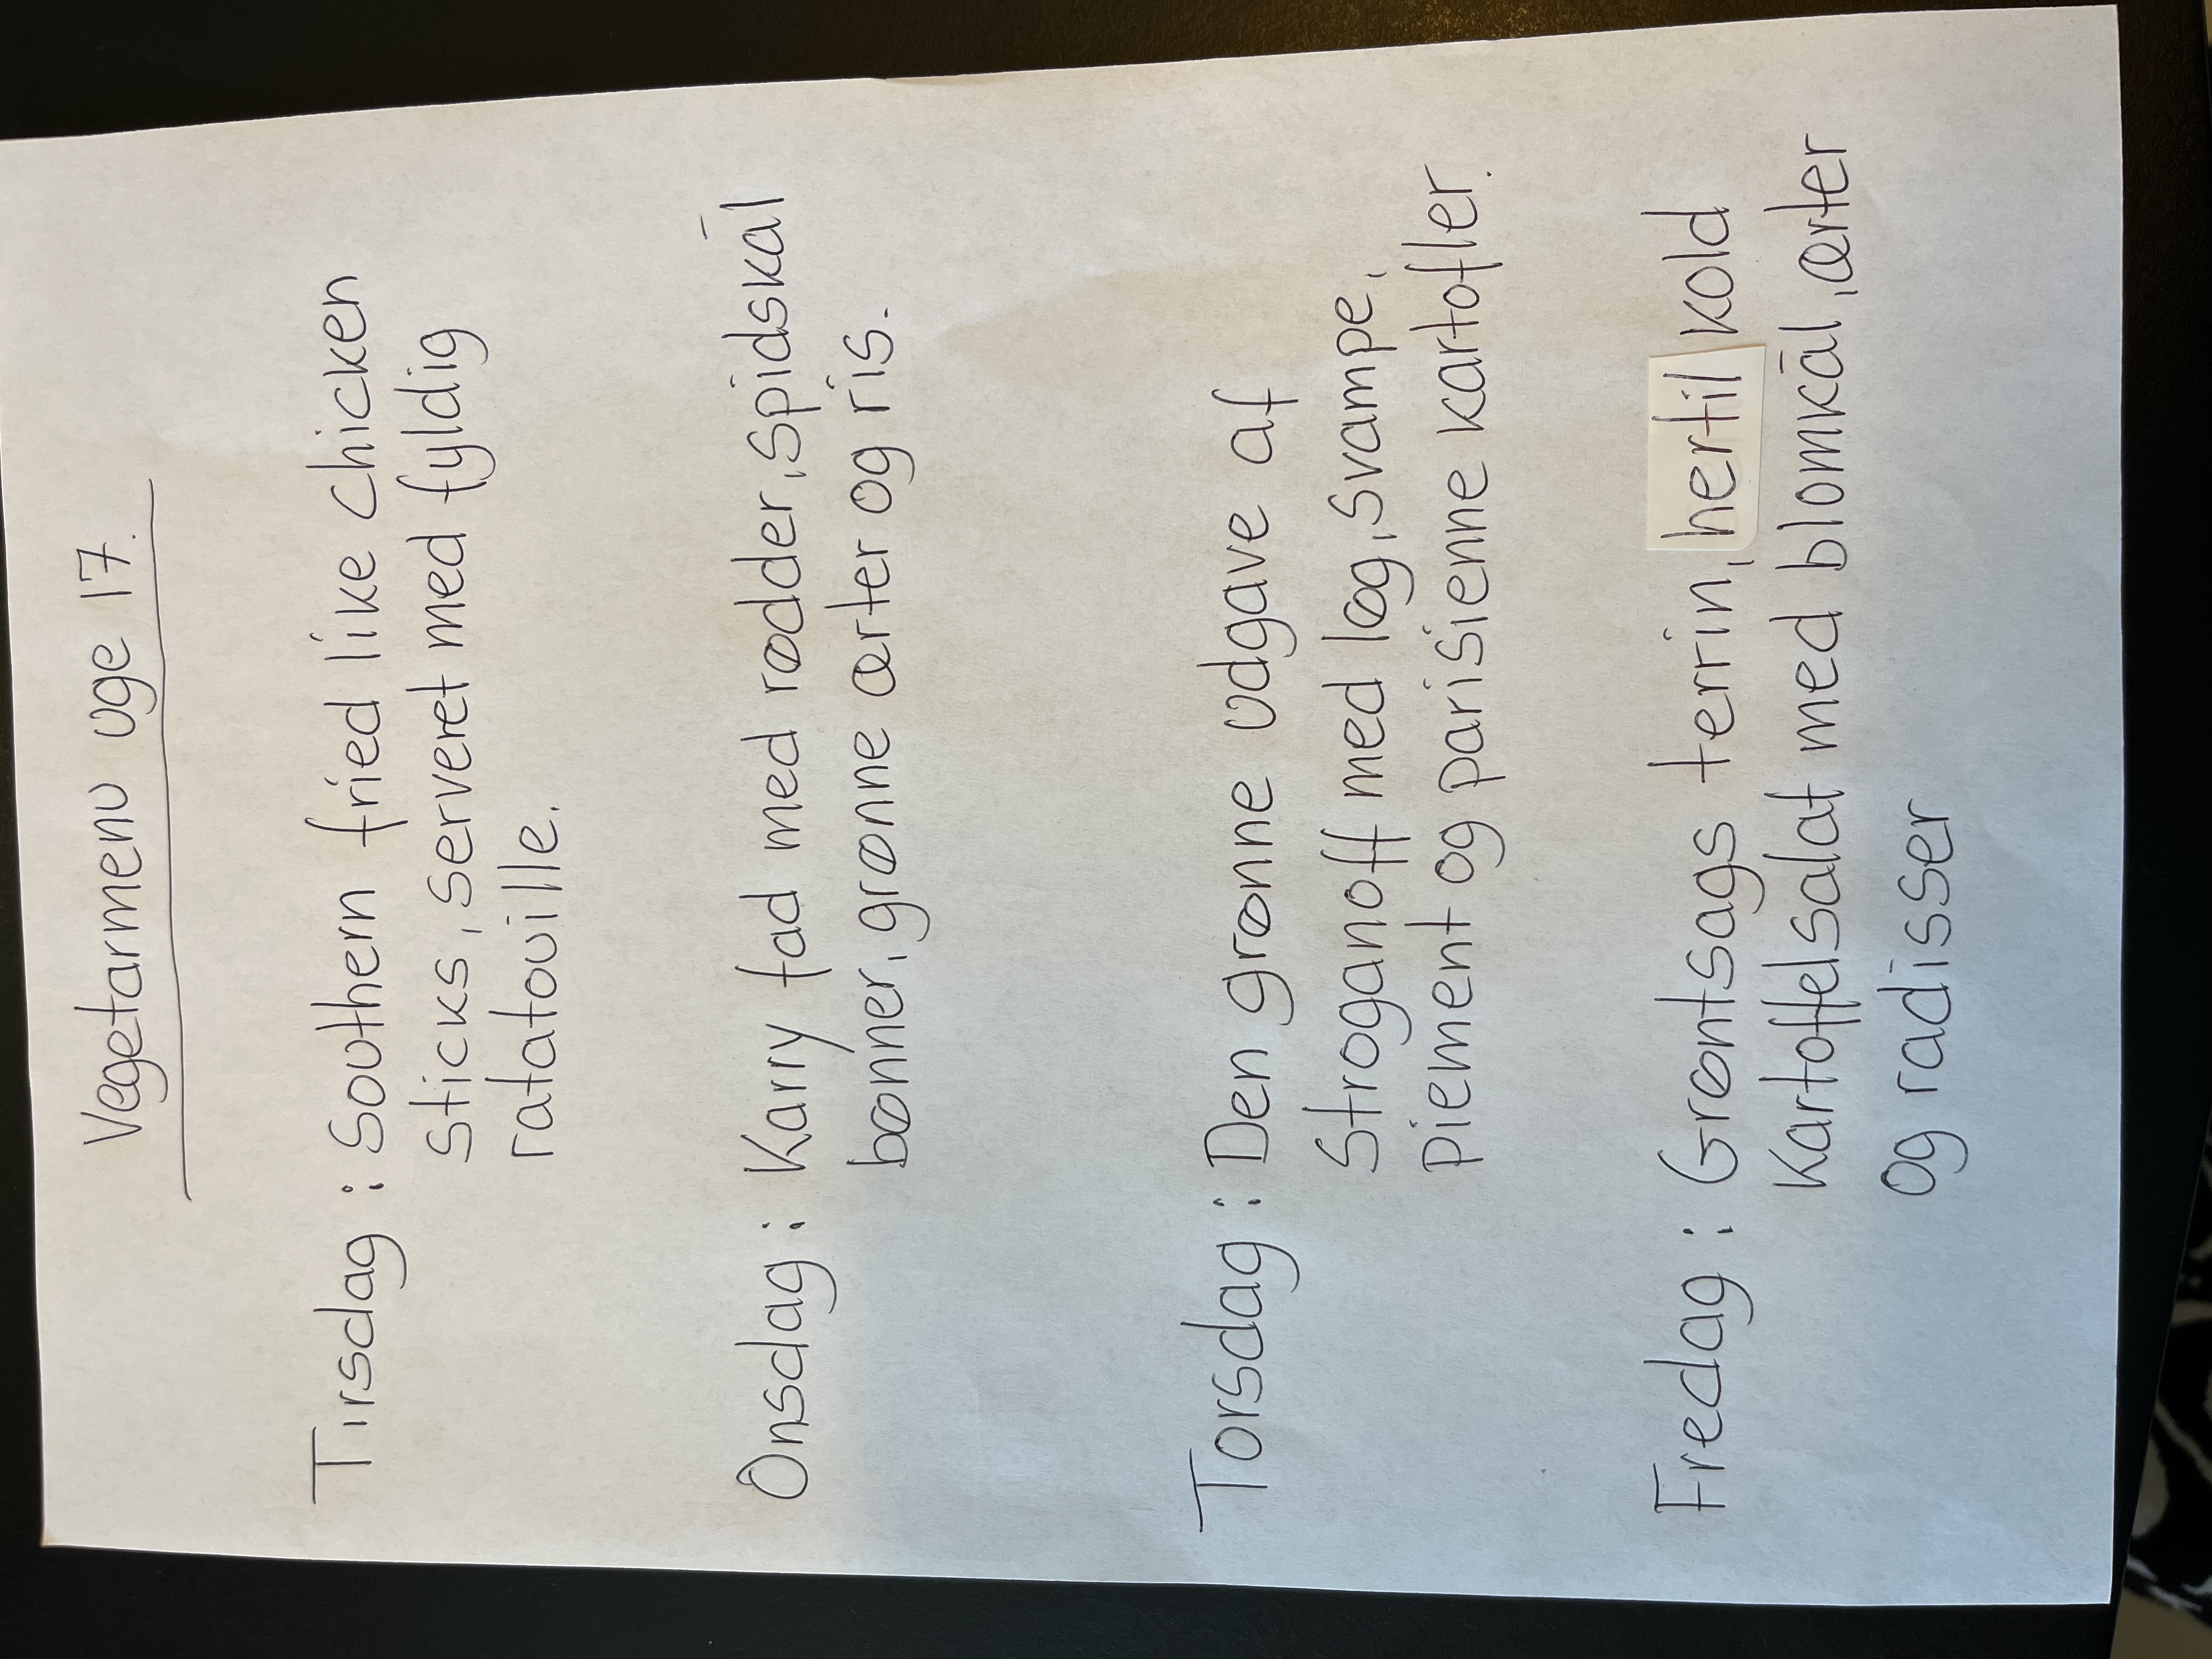 Vegetarmenu uge 17.
Tirsdag : Southern fried like chicken
sticks, serveret med fyldig
ratatouille.
Onsdag : Karry fad med rødder, spidskål
bønner, grønne ærter og ris.
Torsdag : Den grønne udgave af
Stroganoff med løg, svampe,
Piement og parisienne kartofler.
Fredag : Grøntsags terrin, hertil kold
Kartoffelsalat med blomkål, ærter
og radisser